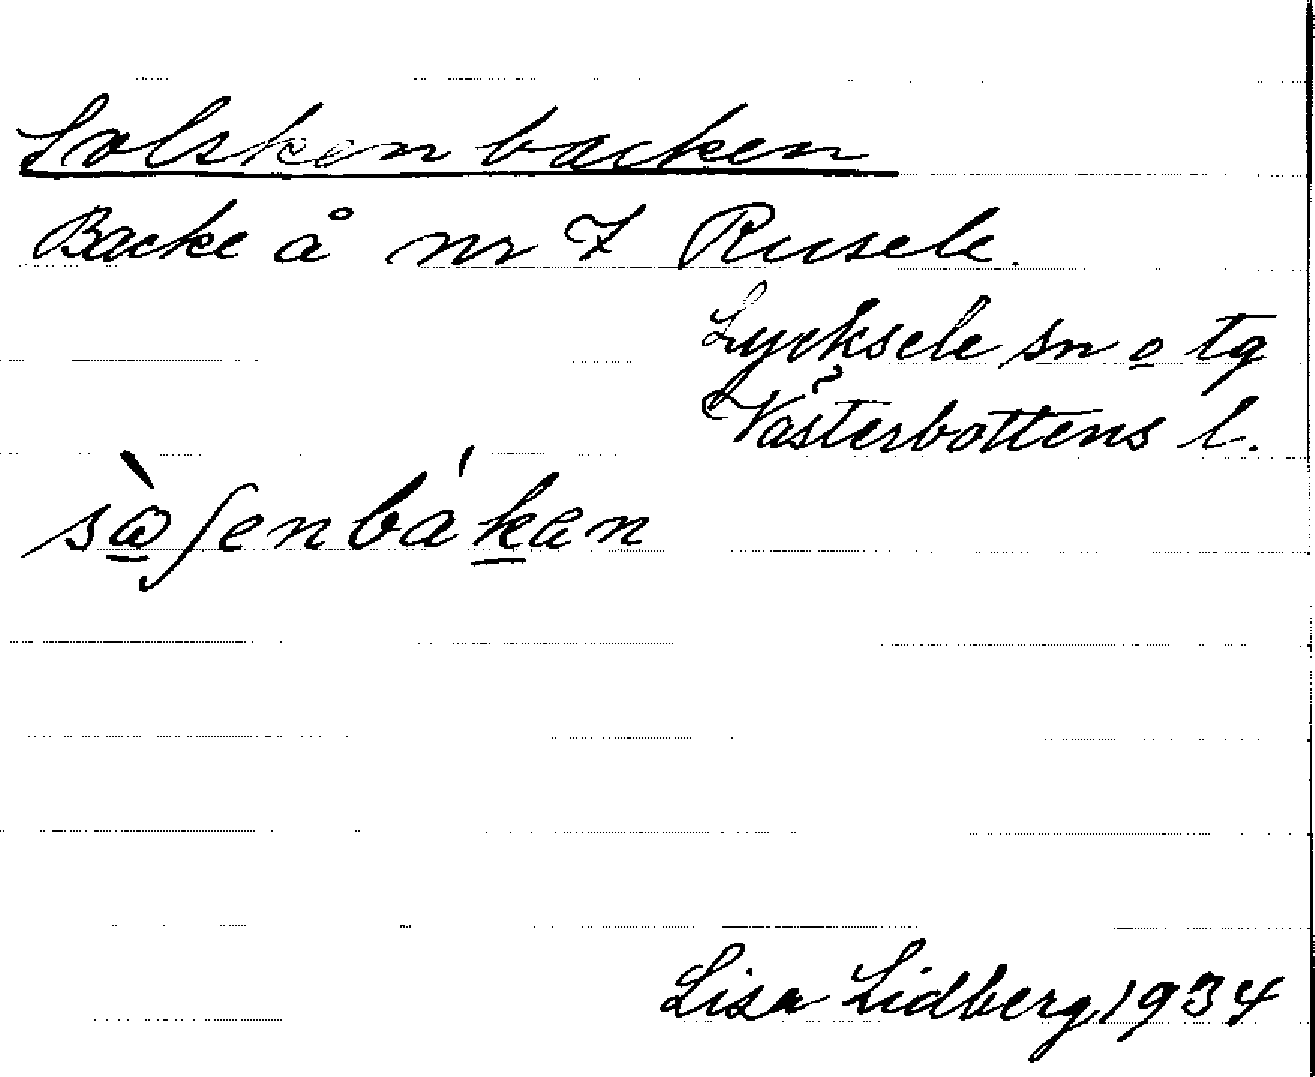 Solskenbacken
Backe å nr 7 Rusele.
Lycksele sn o tg
Västerbottens l.
sὰ̱ʃenbák̲en
Lisa Lidberg 1934